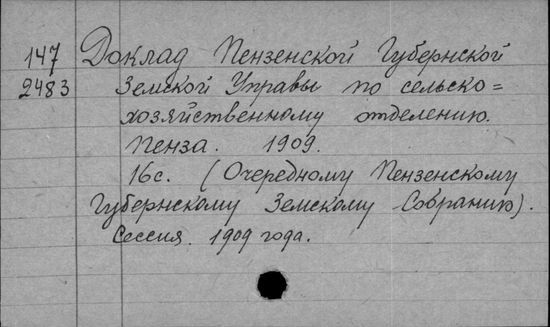 147 Доклад Пензенской Губернской
2483 Земской Управы по сельско=
хозяйственному отделению.
Пенза. 1909.
16с. (Очередному Пензенскому
Губернскому Земскому Собранию).
Сессия 1909 года.